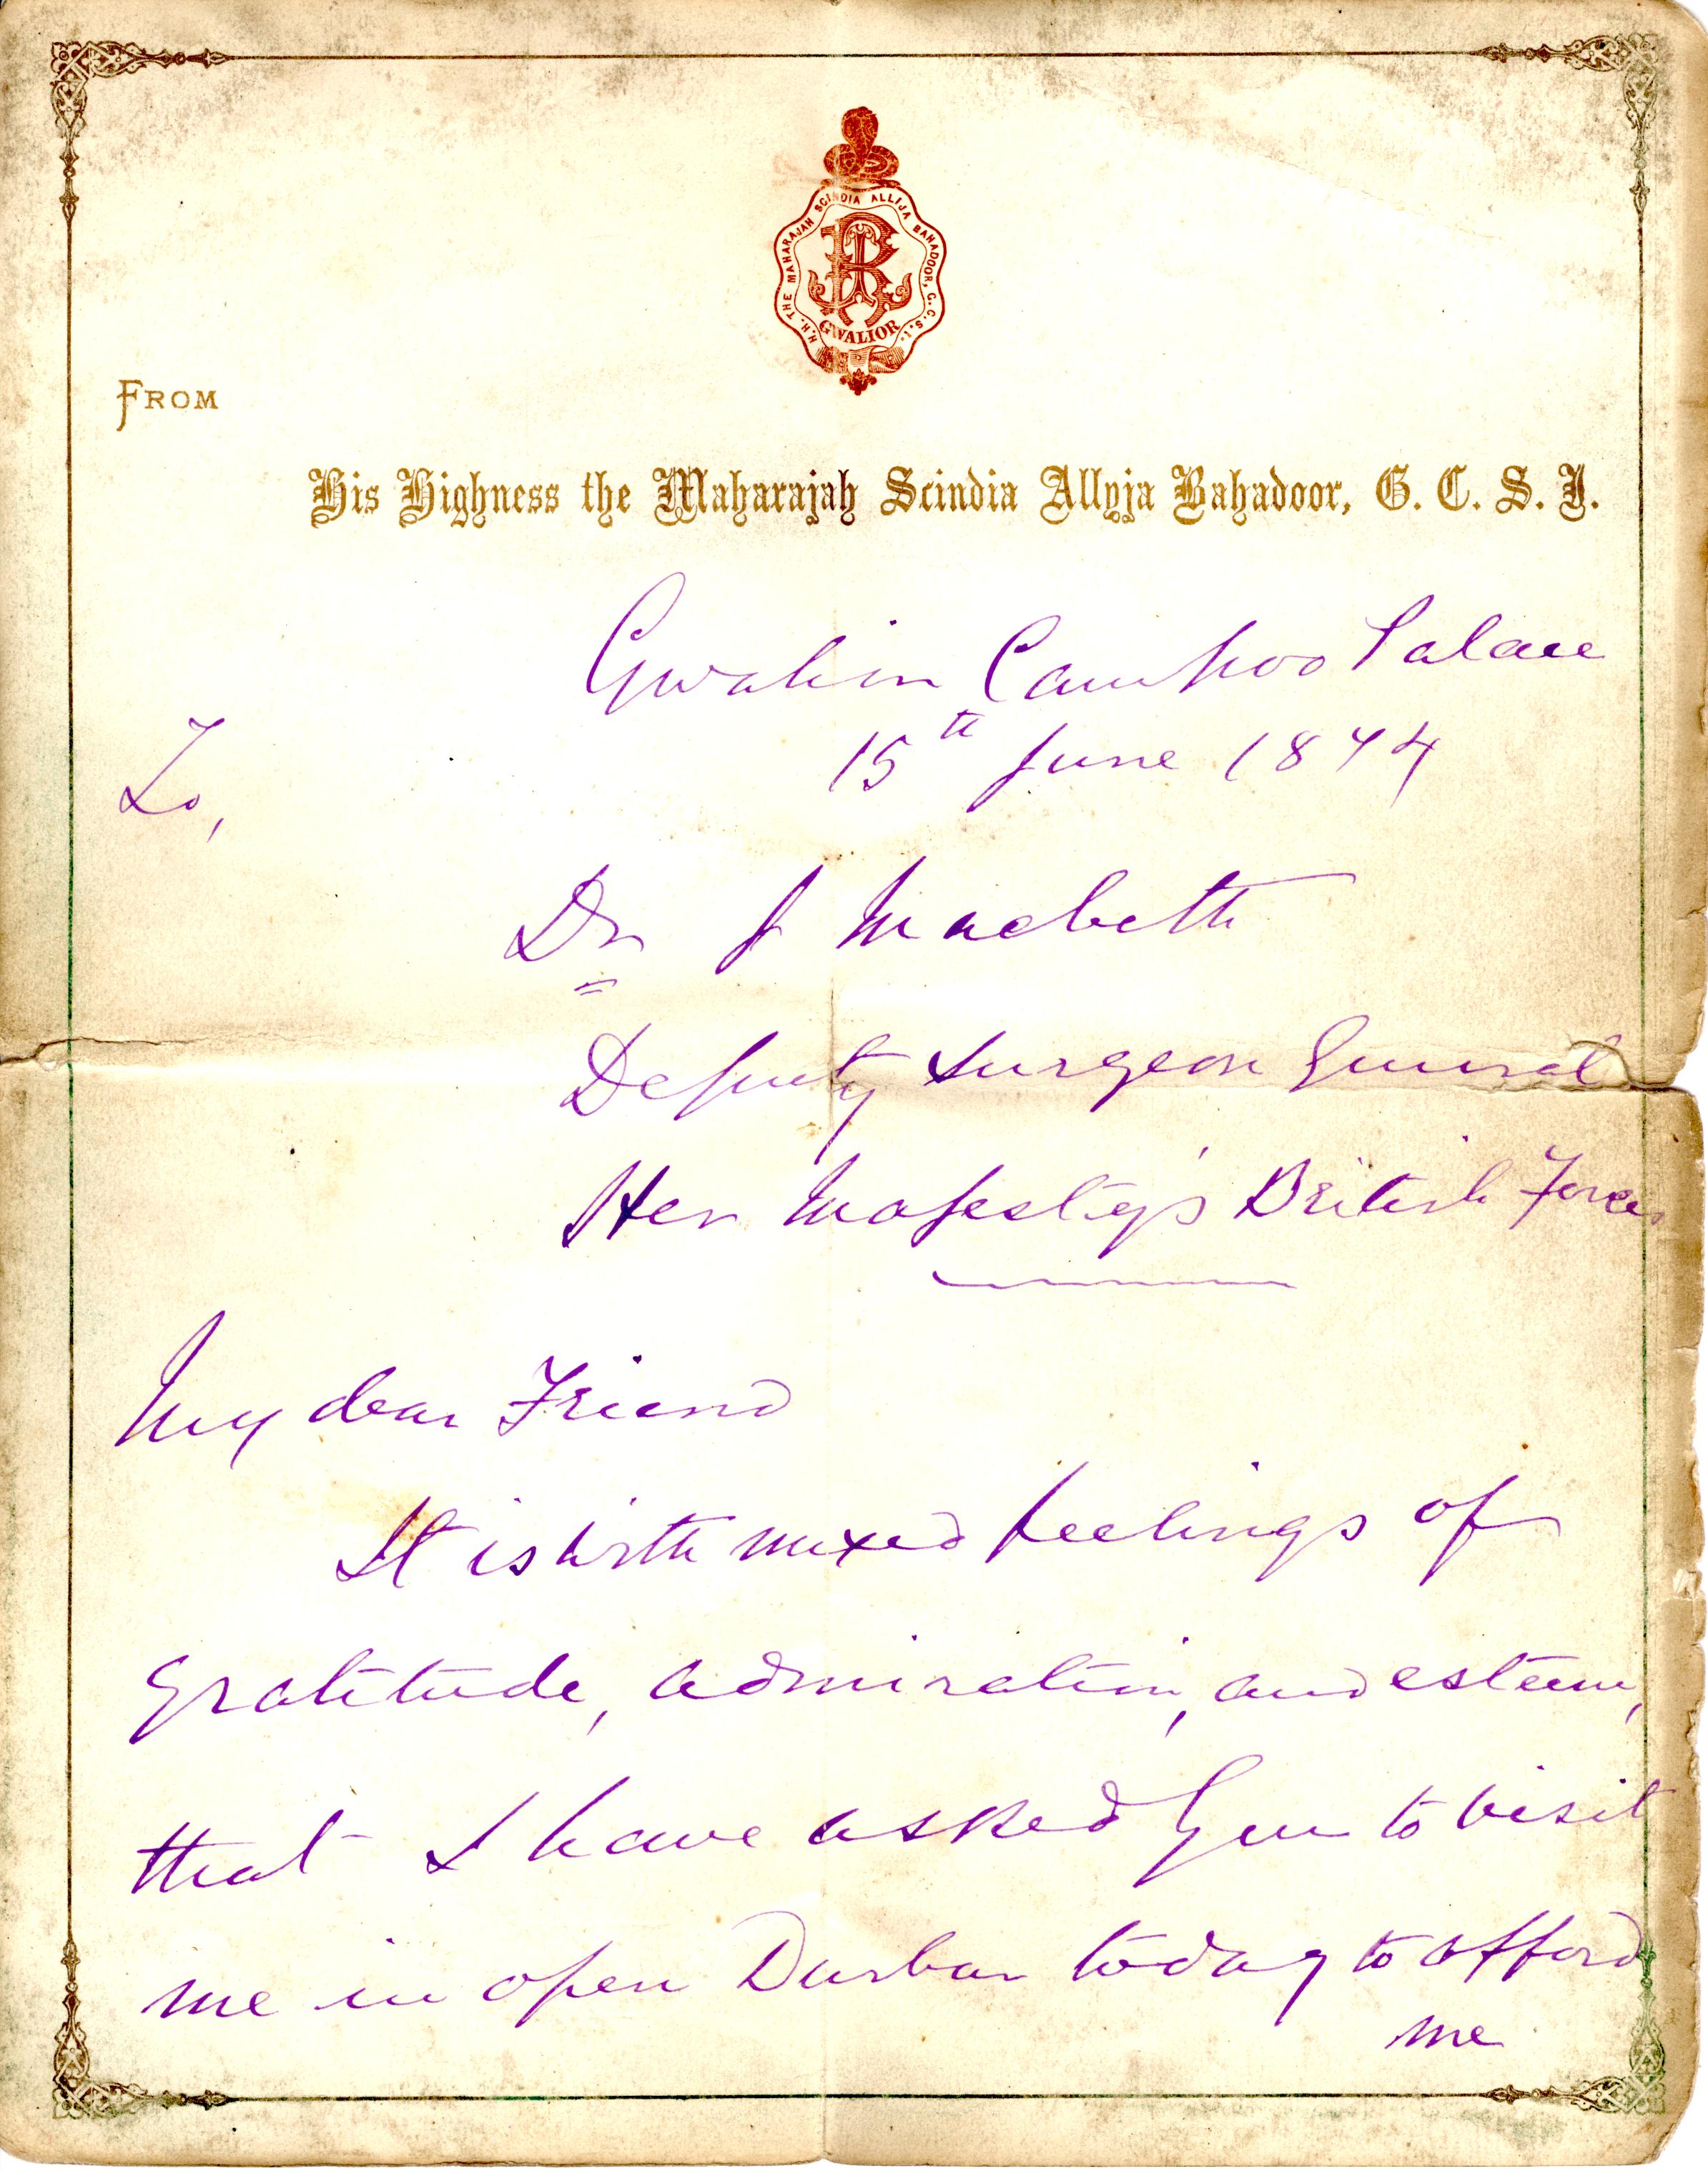 H.H. THE MAHARAJAH SCINDIA ALLIJA BAHADOOR, G.C.S.I.
GWALIOR
FROM
His Highness the Maharajah Scindia Allyja Bahadoor, G. C. S. I.
Gwalior Camphoo Palace
15th June 1874
To,
Dr J Macbeth
Deputy Surgeon General
Her Majesty's British Forces
My dear Friend
It is with mixed feelings of
gratitude, admiration, and esteem,
that I have asked you to visit
me in open Durbar today to afford
me